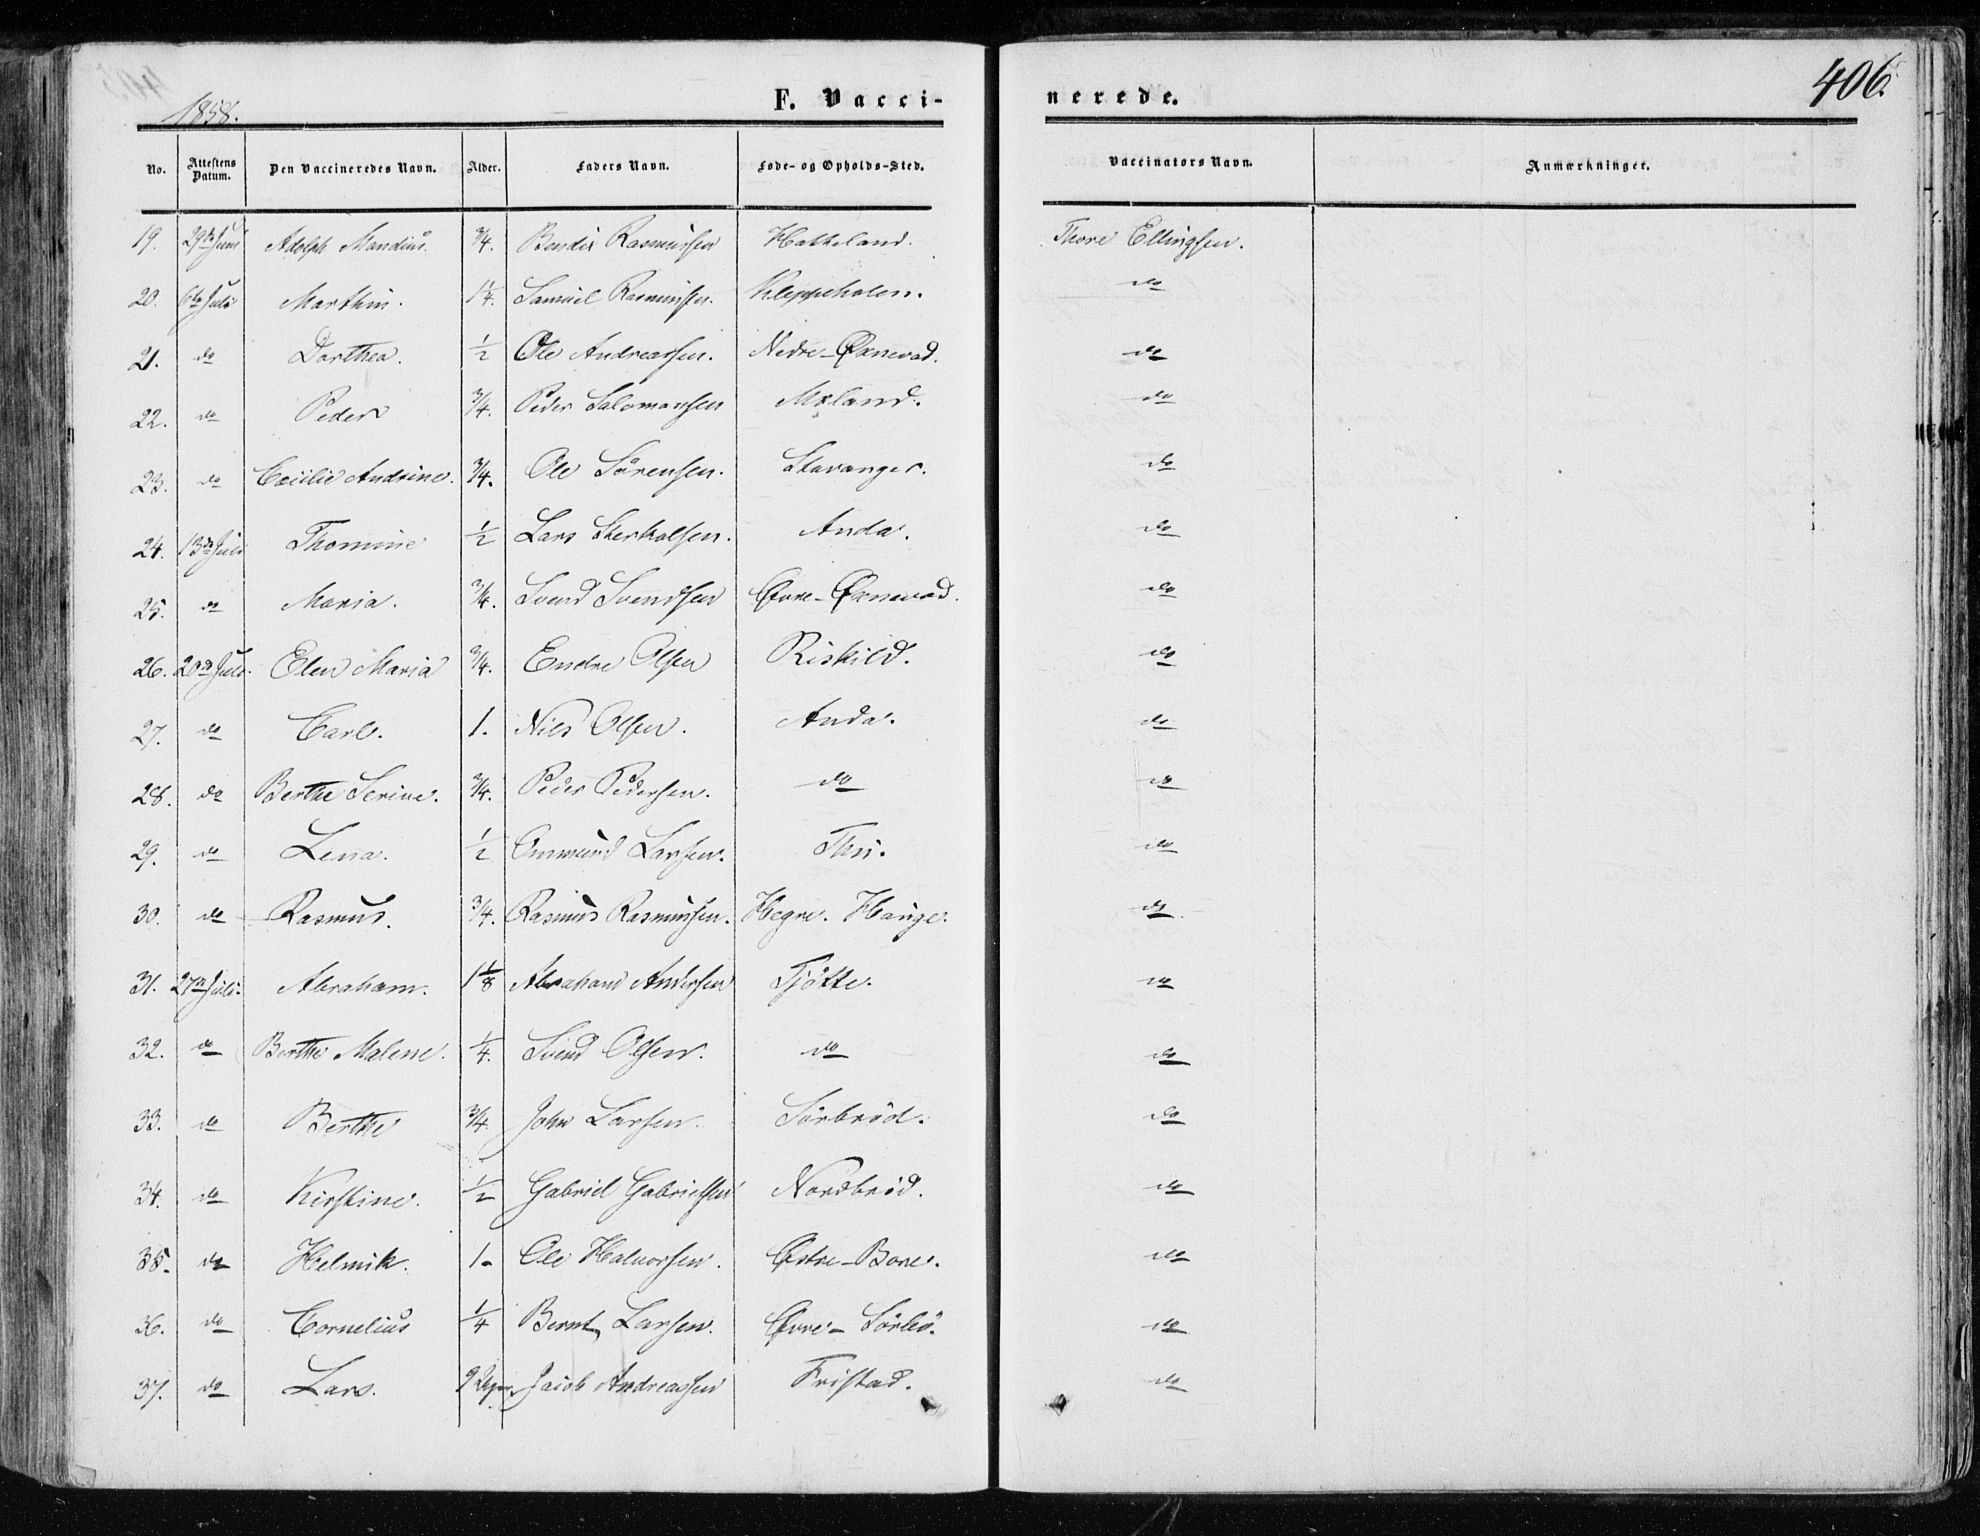 406.
1858.
F. Vacci-
nerede.
No. Attestens Datum. Den Vaccineredes Navn. Alder. Faders Navn. Føde- og Opholds-Sted. Vaccinators Navn. Anmærkninger.
19. 29de Juni Adolph Mandius. 3/4. Bendix Rasmussen Hatteland. Thore Ellingsen.
20. 6te Juli Marthin. 1 1/4. Samuel Rasmussen. Kleppeholen. do
21. do Dorthea. 1/2 Ole Andreassen. Nedre-Øxnevad. do
22. do Peder 3/4. Peder Salomonsen Mæland. do
23. do Cecilie Andrine. 3/4. Ole Sörensen. Stavanger. do
24. 13de Juli Thomine 1/2 Lars Sterkolsen. Anda. do
25. do Maria. 3/4. Svend Svendsen Øvre-Øxnevad. do
26. 20de Juli. Elen Maria 3/4. Endre Olsen Riskild. do
27. do Carl. 1. Nils Olsen. Anda. do
28. do Berthe Serine. 3/4. Peder Pedersen. do do
29. do Lena. 1/2 Ommund Larsen. Thu. do
30. do Rasmus. 3/4. Rasmus Rasmussen. Hegre. Hauge. do
31. 27de Juli. Abraham. 1 1/8 Abraham Andersen Tjötte. do
32. do Berthe Malene. 1/4. Svend Olsen. do do
33. do Berthe 3/4 John Larsen. Sörbröd. do
34. do Kirstine. 1/2 Gabriel Gabrielsen Nordbröd. do
35. do Helmik. 1. Ole Halvorsen. Østre-Bore. do
36. do Cornelius 1/4 Bernt Larsen. Øvre-Sörbö. do
37. do Lars. 9 Jacob Andreassen Fristad. do